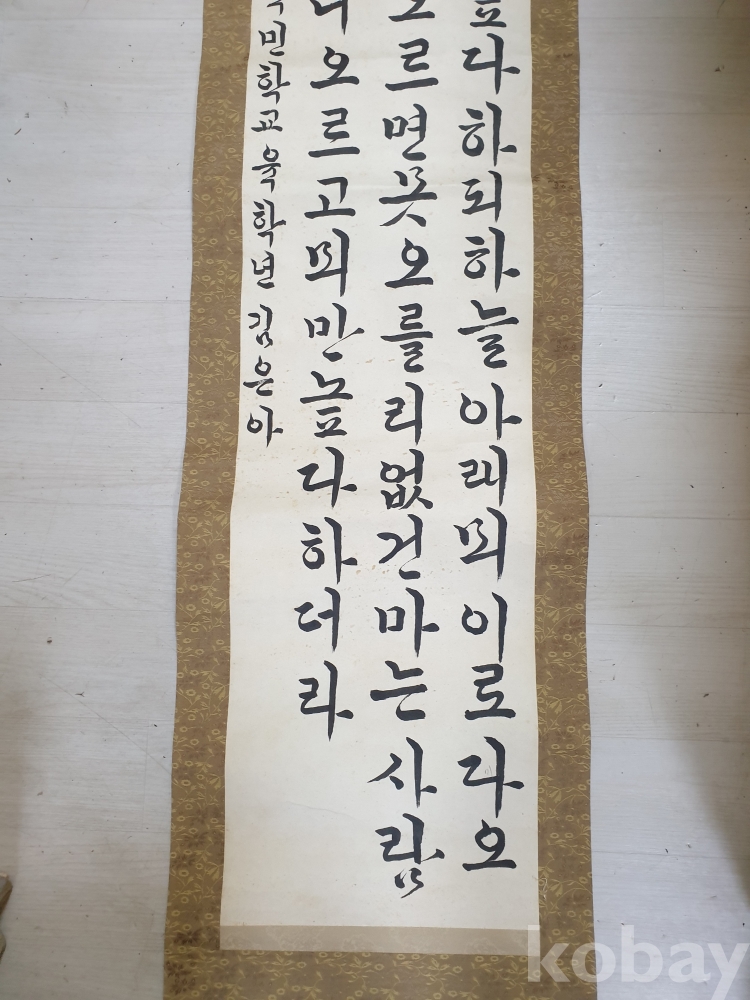 다하되하늘아래뫼이로다오
르면못오를리없건마는사람
오르고뫼만높다하더라
민학교육학년김은아
kobay